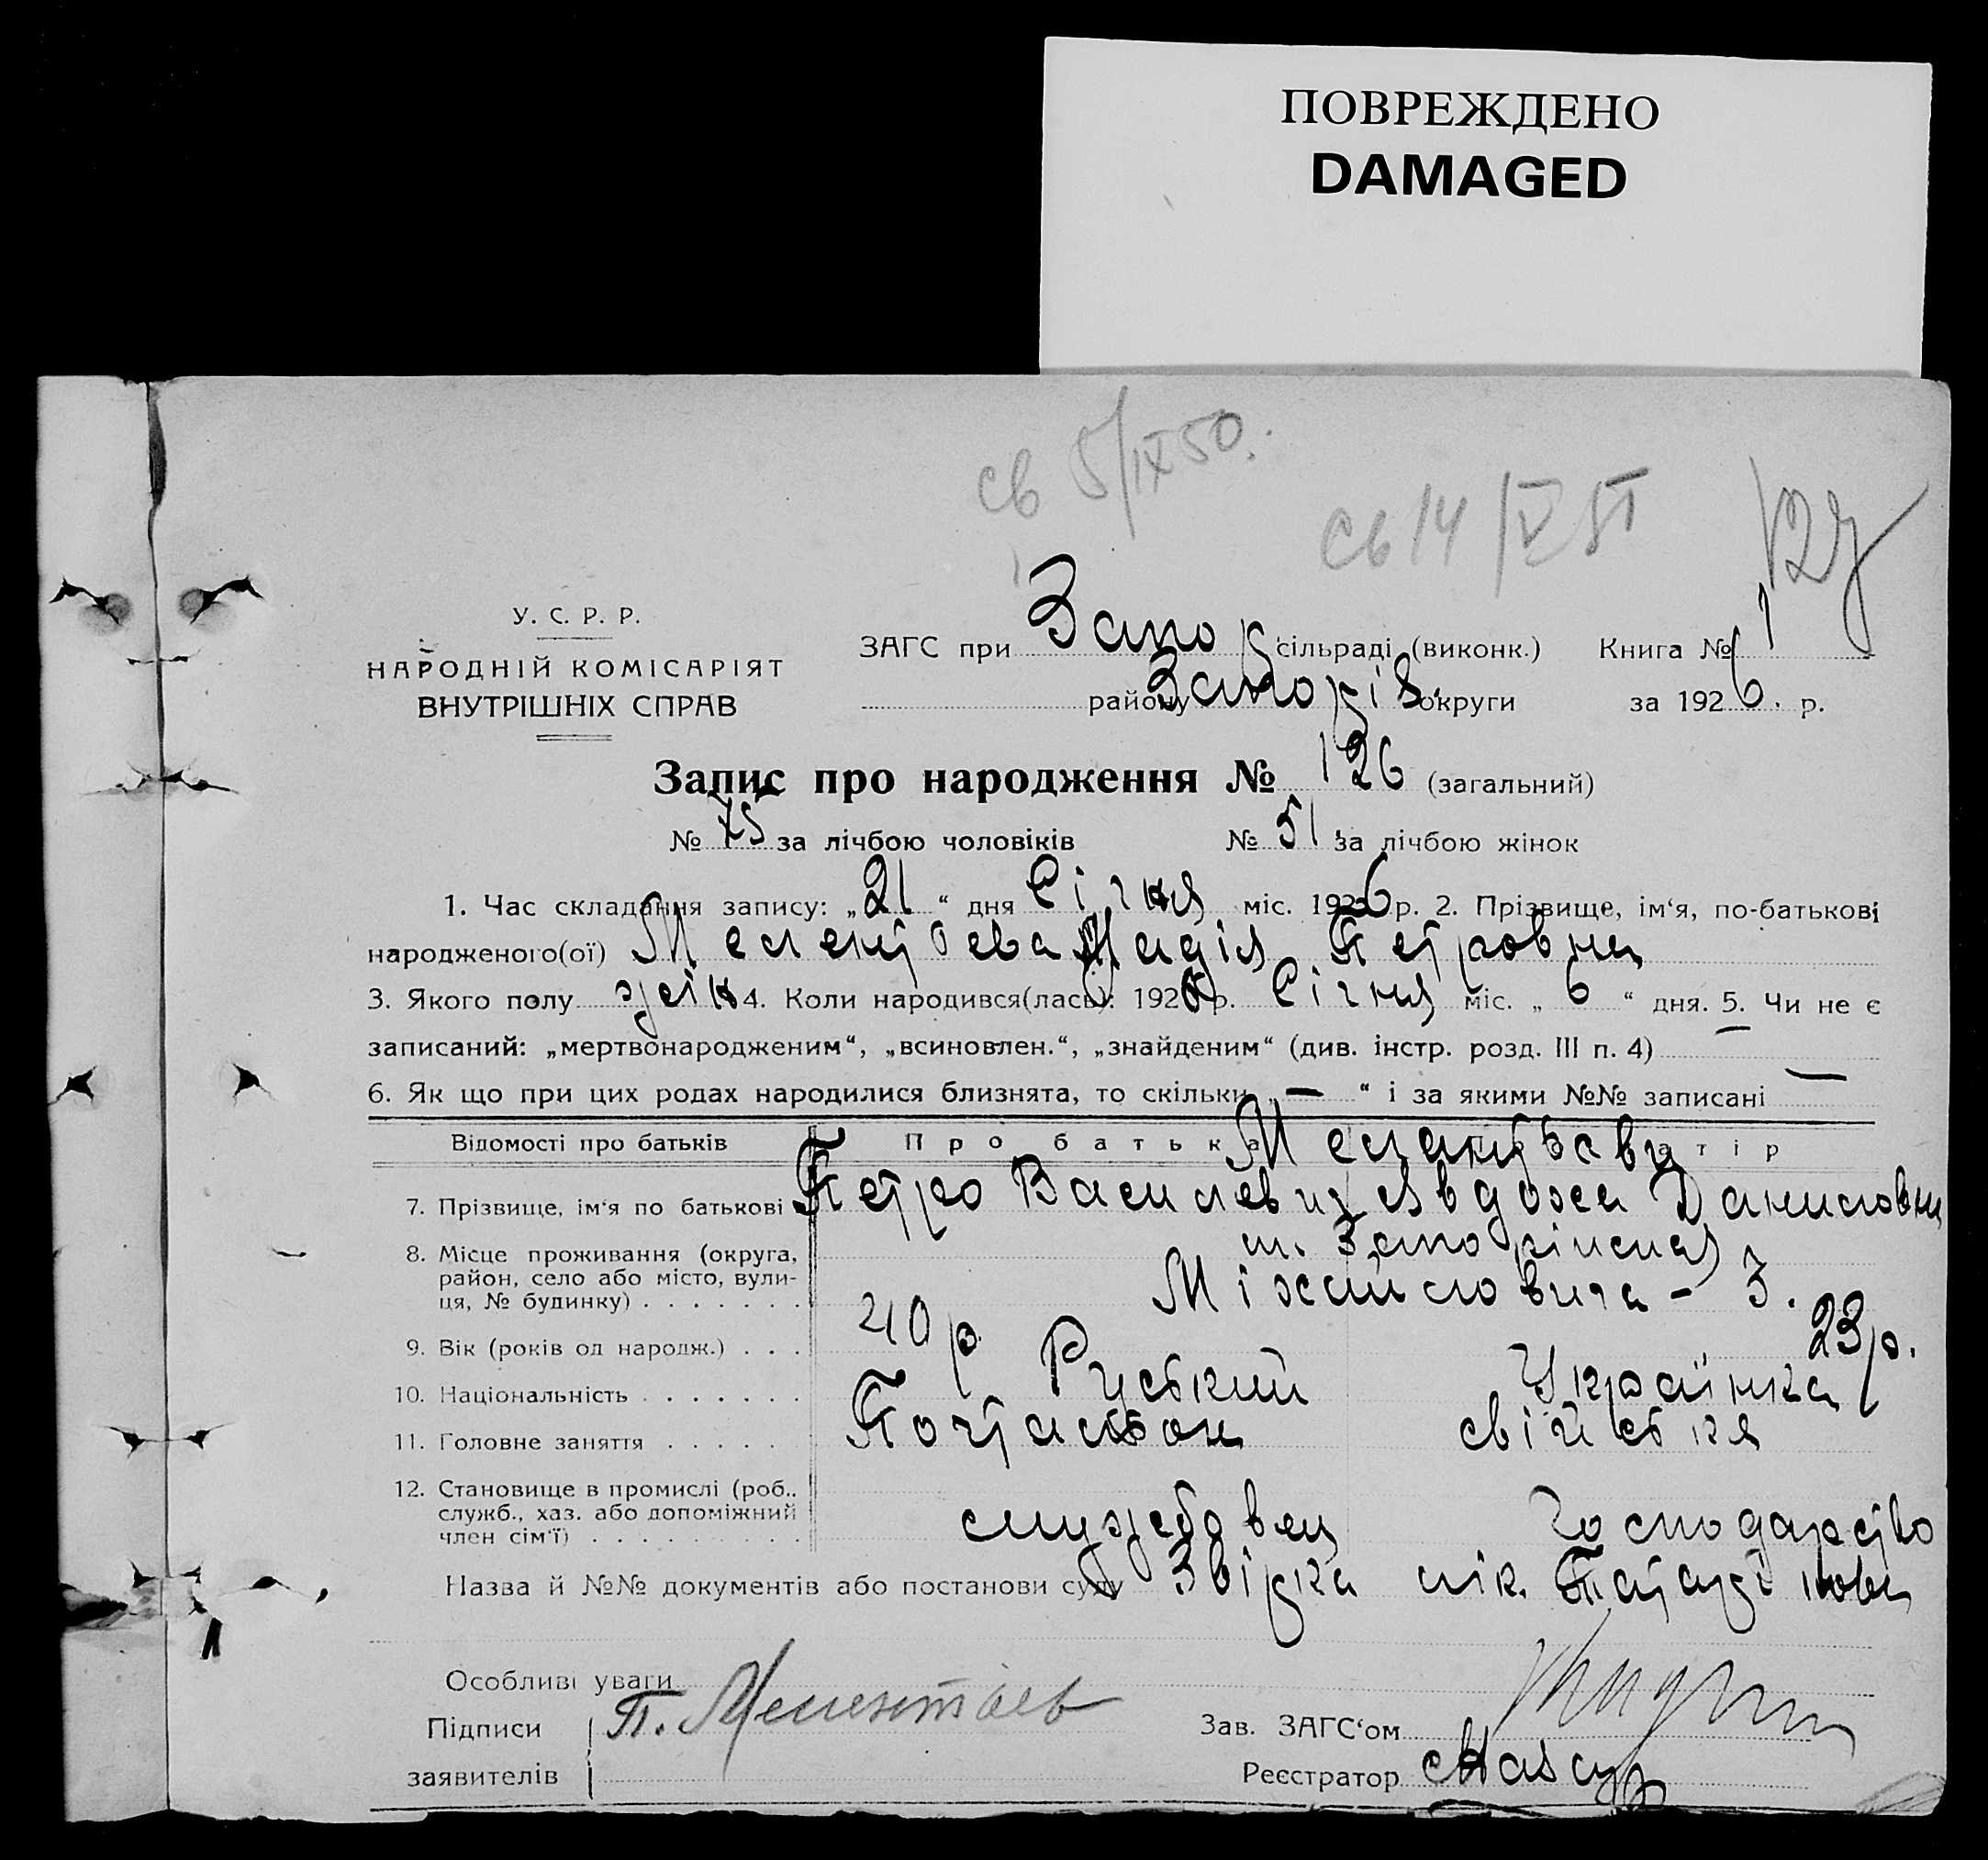 ПОВРЕЖДЕНО
DAMAGED
св 5/IX 50.
св 14/V 51
У. С. Р. Р.
НАРОДНІЙ КОМІСАРІЯТ
ВНУТРІШНІХ СПРАВ
ЗАГС при Запор сільраді (виконк.) Книга № 1
району Запорів округи за 1926. р.
Запис про народження № 126 (загальний)
№ 75 за лічбою чоловіків № 51 за лічбою жінок
1. Час складання запису: „21“ дня Січня міс. 1926 р. 2. Прізвище, ім‘я, по-батькові
народженого(ої) Мелентьева Надія Петровна
3. Якого полу жін 4. Коли народився(лась): 1926 р. Січня міс. „6“ дня. 5. Чи не є
записаний: „мертвонародженим“, „всиновлен.“, „знайденим“ (див. інстр. розд. III п. 4) —
6. Як що при цих родах народилися близнята, то скільки „—“ і за якими №№ записані —
Відомості про батьків Про батька
7. Прізвище, ім‘я по батькові Петро Василевич Явдоха Даниловна
8. Місце проживання (округа,
район, село або місто, вули-
ця, № будинку) . . . . . . . Міхайловича - 3.
9. Вік (років од народж.) . . . 40 р. 23 р.
10. Національність . . . . . . . Руський Українка
11. Головне заняття . . . . . свійська
12. Становище в промислі (роб..
служб., хаз. або допоміжний
член сім‘ї) . . . . . . . . . службовец господарство
Назва й №№ документів або постанови суду Звірка лік.
Особливі уваги
Підписи П. Мелентьев Зав. ЗАГС‘ом
заявителів Реєстратор